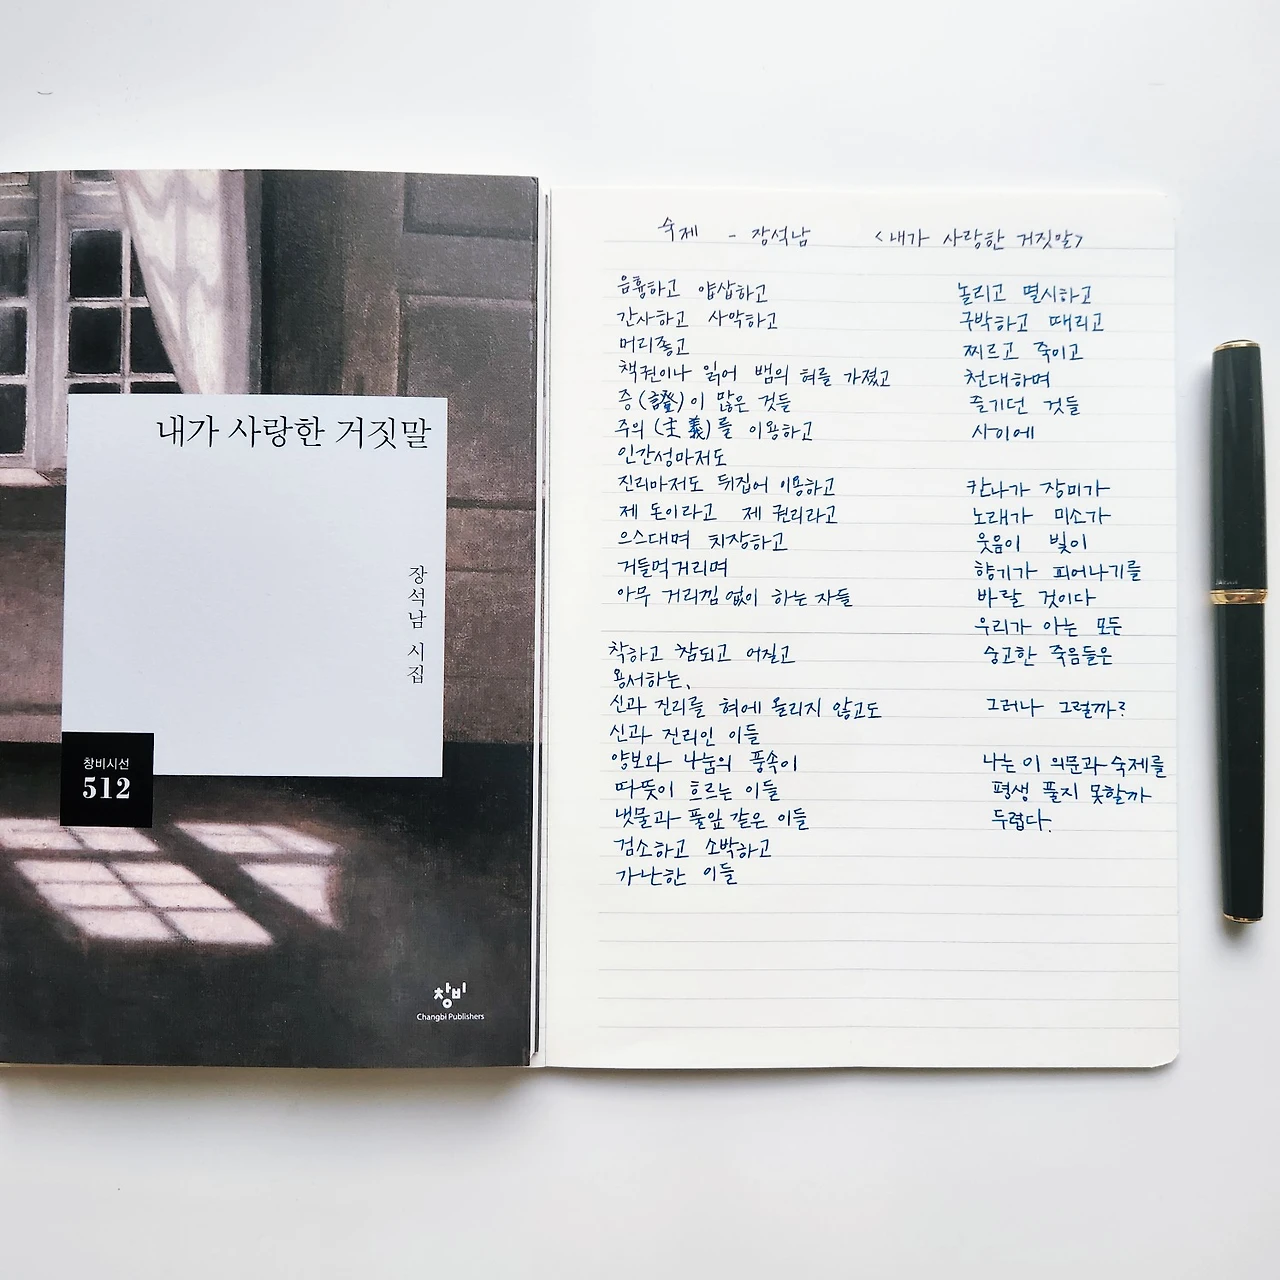 내가 사랑한 거짓말
장석남 시집
창비시선
512
창비
Changbi Publishers
숙제 - 장석남 <내가 사랑한 거짓말>
음흉하고 얍삽하고
간사하고 사악하고
머리좋고
책권이나 읽어 뱀의 혀를 가졌고
증(證)이 많은 것들
주의(主義)를 이용하고
인간성마저도
진리마저도 뒤집어 이용하고
제 돈이라고 제 권리라고
으스대며 치장하고
거들먹거리며
아무 거리낌 없이 하는 자들
착하고 참되고 어질고
용서하는,
신과 진리를 혀에 올리지 않고도
신과 진리인 이들
양보와 나눔의 풍속이
따뜻이 흐르는 이들
냇물과 풀잎 같은 이들
검소하고 소박하고
가난한 이들
놀리고 멸시하고
구박하고 때리고
찌르고 죽이고
천대하며
즐기던 것들
사이에
칸나가 장미가
노래가 미소가
웃음이 빛이
향기가 피어나기를
바랄 것이다
우리가 아는 모든
숭고한 죽음들은
그러나 그럴까?
나는 이 의문과 숙제를
평생 풀지 못할까
두렵다.